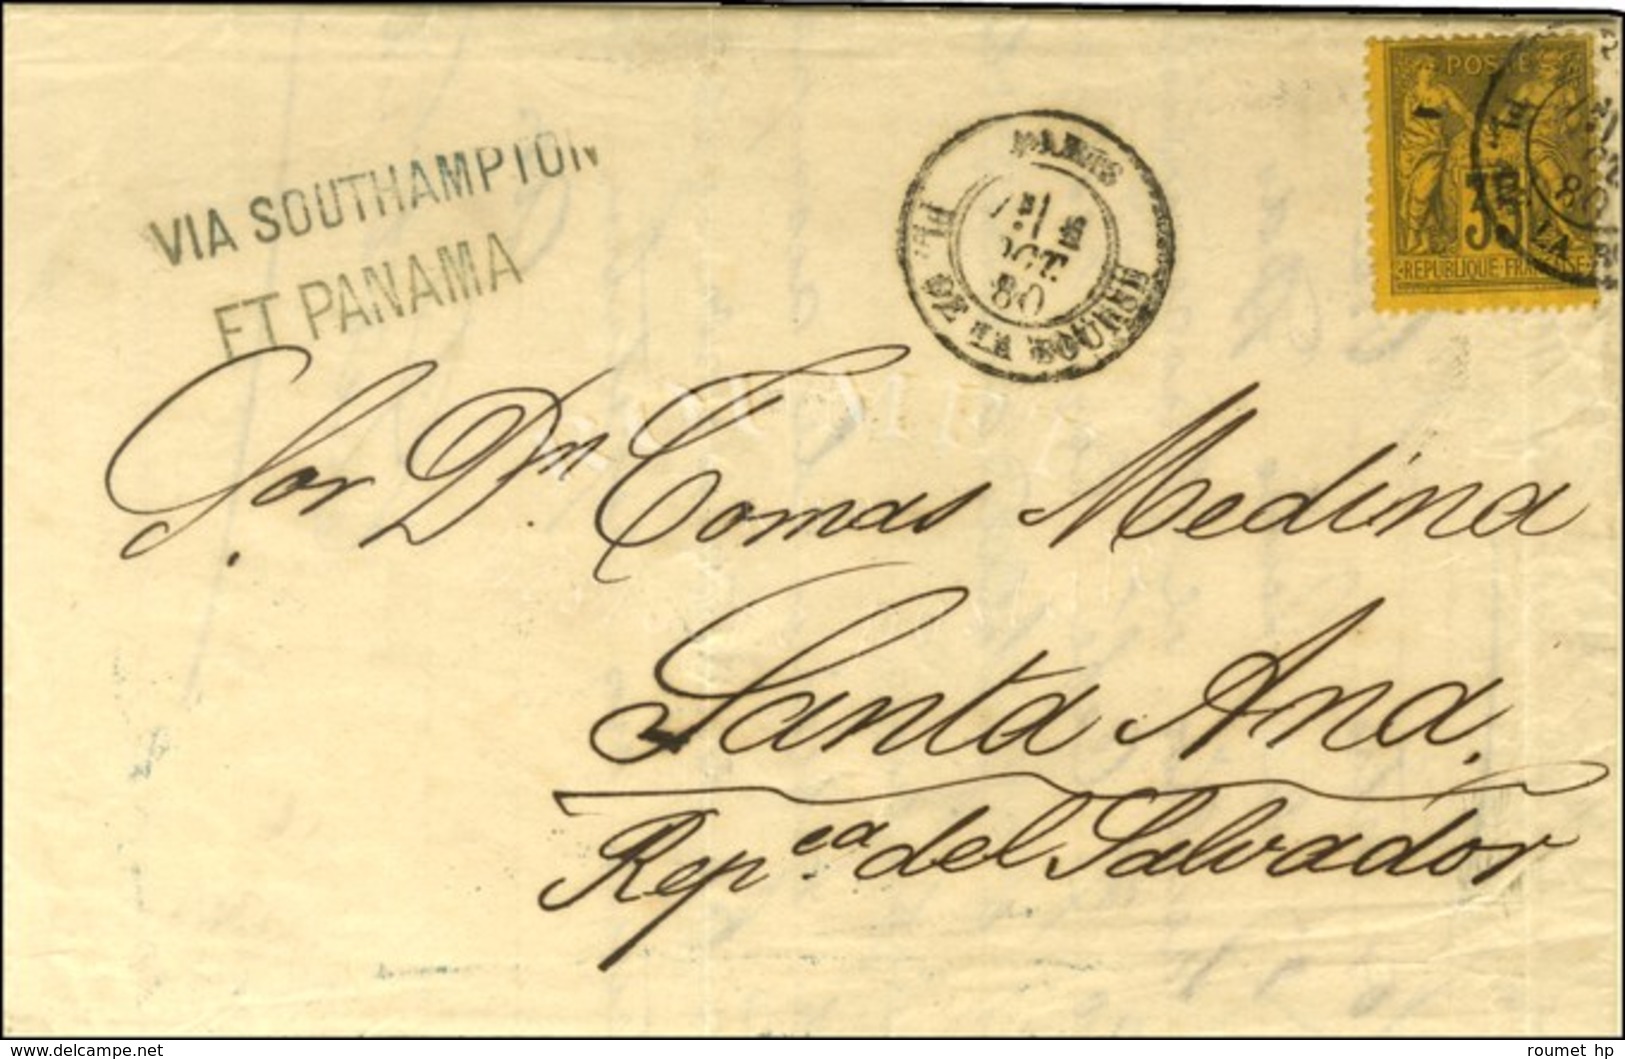 VIA SOUTHAMPTON
ET PANAMA
PARIS
OCT.
80
PL. DE LA BOURSE
POSTES
35
REPUBLIQUE FRANCAISE
80
LA
Sor. Dn. Tomas Medina
Santa Ana.
Repca. del Salvador
ROUMET
delcampe.net
roumet hp